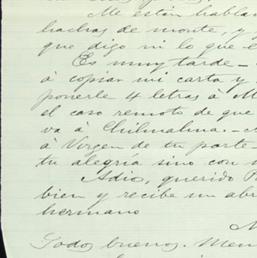 Me están habla
hachas de monte, y
que digo ni lo que e
Es muy tarde—
á copiar mi carta y
ponerle 4 letras á M
el caso remoto de que
va á Chilmalina.—
á Virgen de tu parte
tu alegría sino con
Adio, querido P
bien y recibe un abr
hermano
Todos buenos. Mem